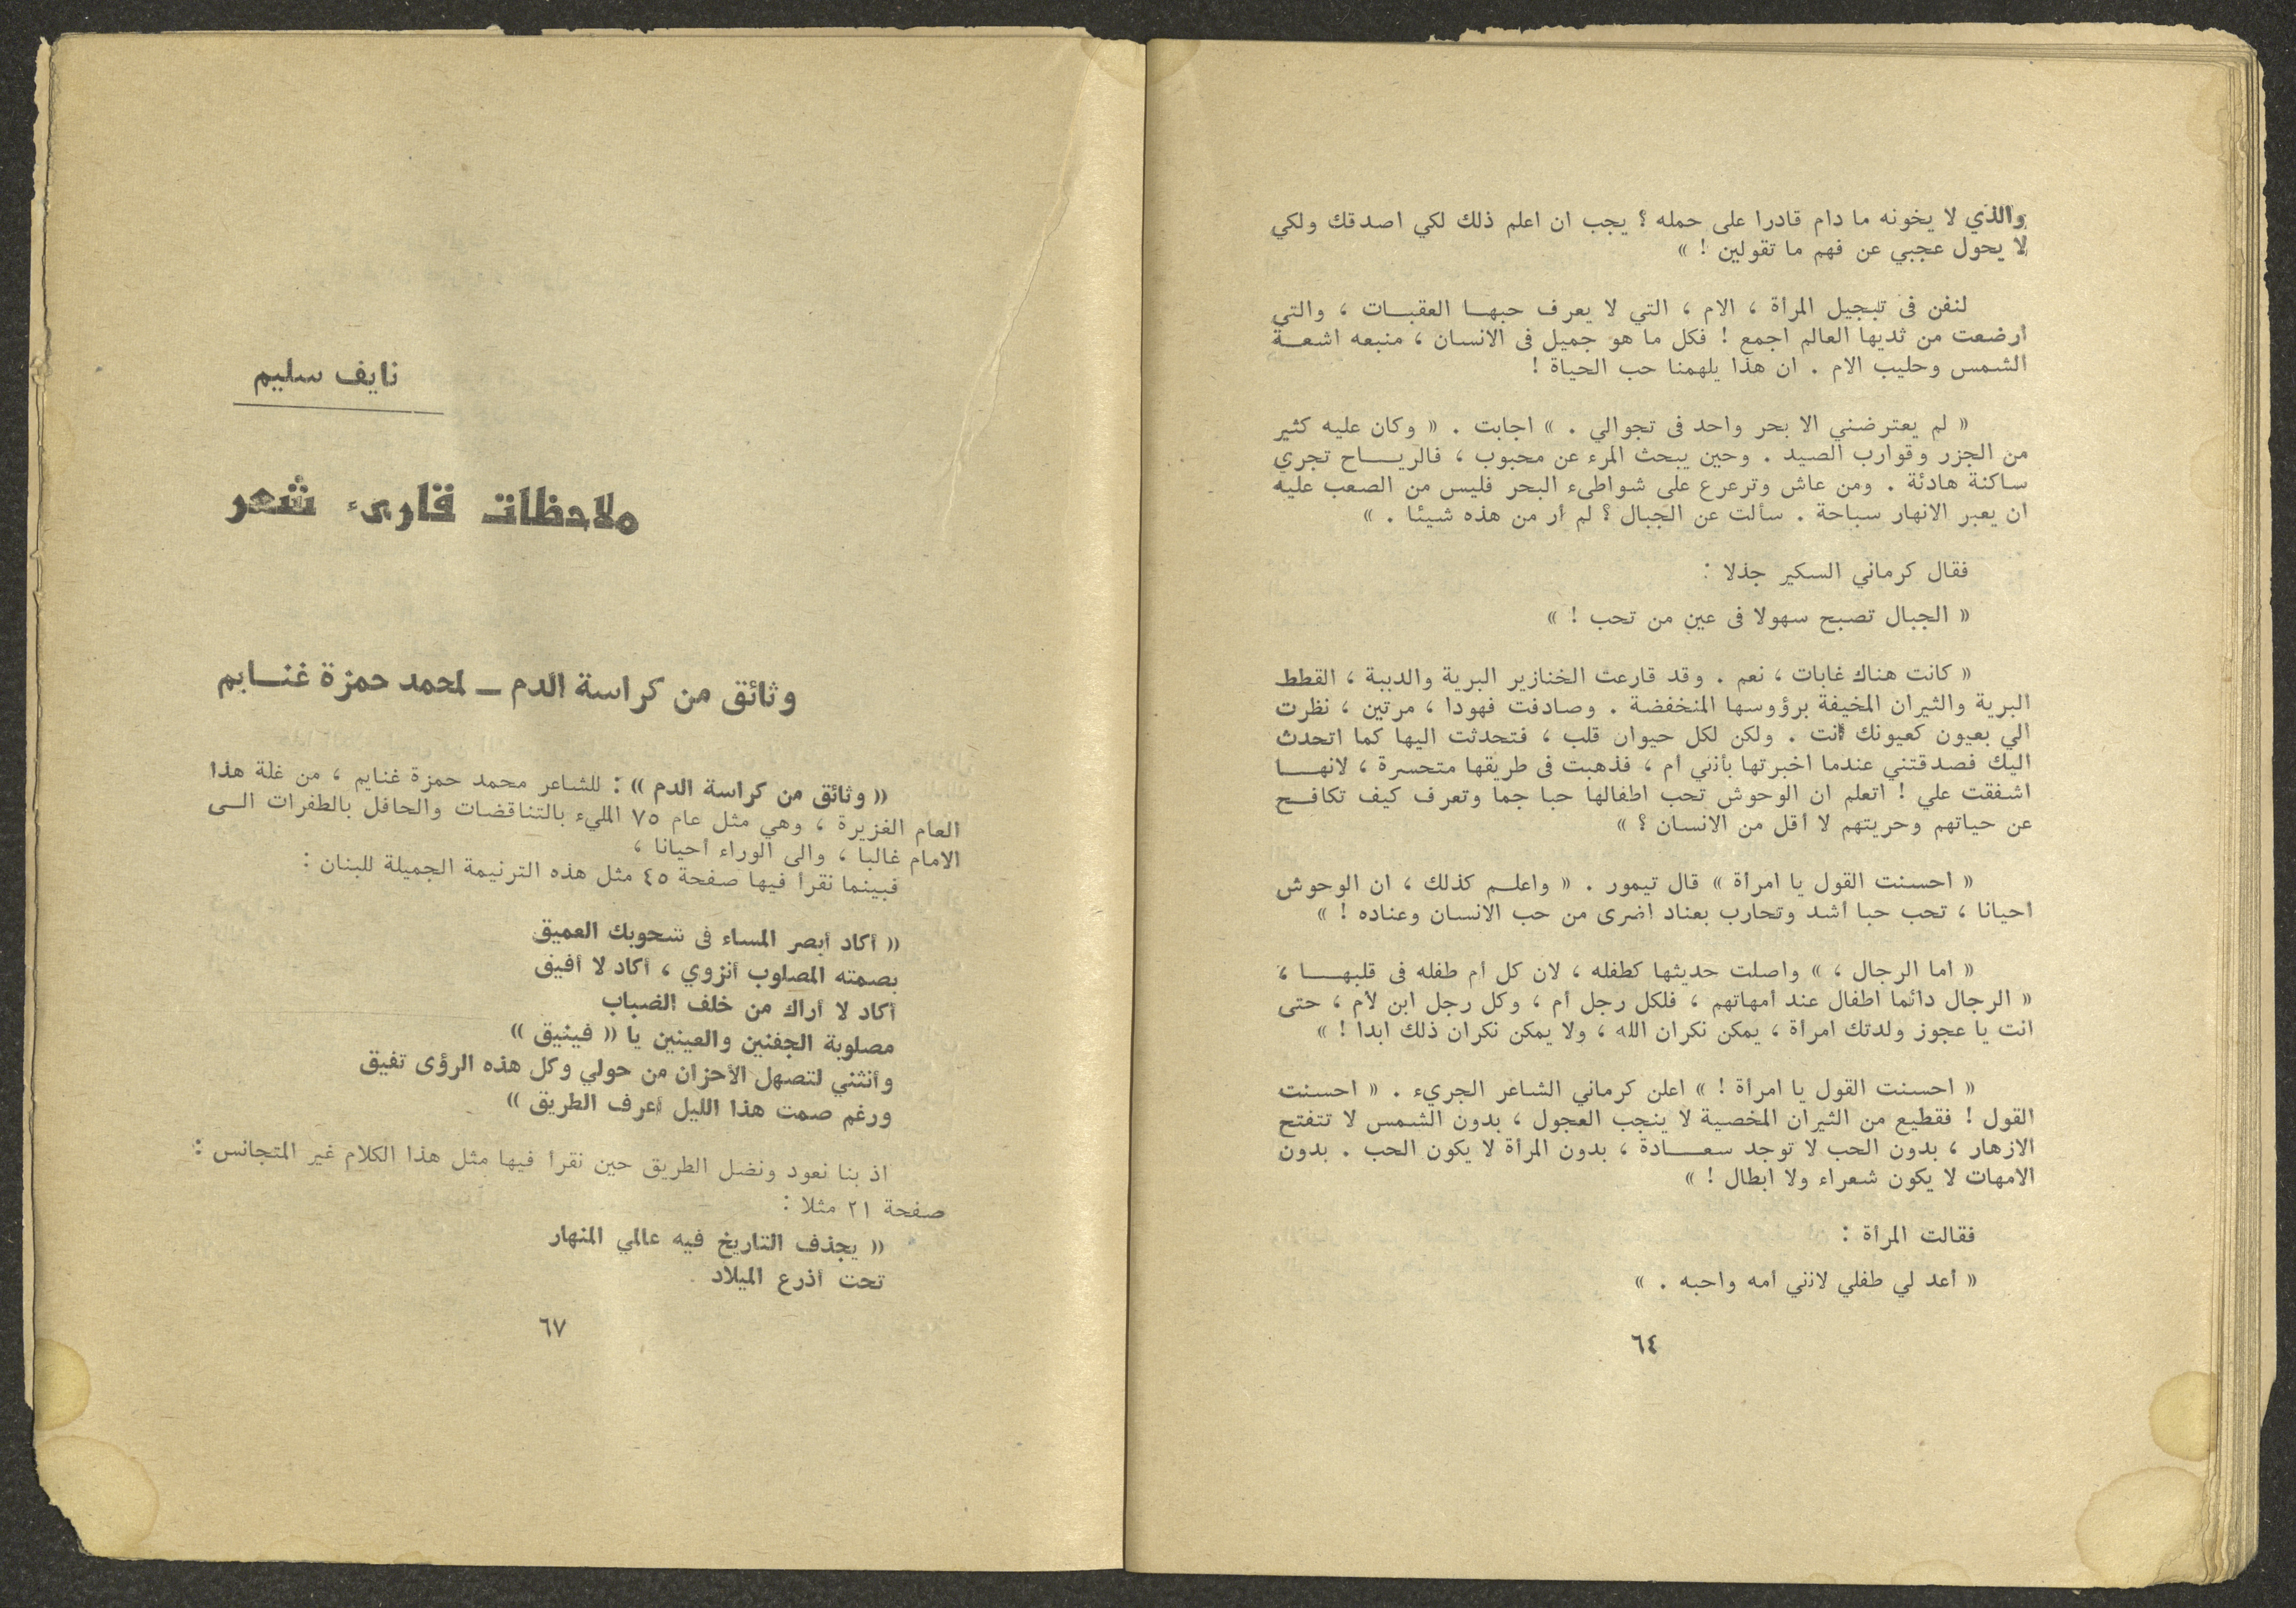 والذي لا يخونه ما دام قادرا على حمله ؟ يجب ان اعلم ذلك لكي اصدقك ولكي
لا يحول عجبي عن فهم ما تقولين ! »
لنفن فى تبجيل المرأة ، الام ، التي لا يعرف حبهـــا العقبـــات ، والتي
أرضعت من ثديها العالم اجمع ! فكل ما هو جميل فى الانسان ، منبعه اشعـــة
الشمس وحليب الام . ان هذا يلهمنا حب الحياة !
« لم يعترضني الا بحر واحد فى تجوالي . » اجابت . « وكان عليه كثير
من الجزر وقوارب الصيد . وحين يبحث المرء عن محبوب ، فالريـــاح تجري
ساكنة هادئة . ومن عاش وترعرع على شواطىء البحر فليس من الصعب عليه
ان يعبر الانهار سباحة . سألت عن الجبال ؟ لم أر من هذه شيئا . »
فقال كرماني السكير جذلا :
« الجبال تصبح سهولا فى عين من تحب ! »
« كانت هناك غابات ، نعم . وقد قارعت الخنازير البرية والدببة ، القطط
البرية والثيران المخيفة برؤوسها المنخفضة . وصادفت فهودا ، مرتين ، نظرت
الي بعيون كعيونك أنت . ولكن لكل حيوان قلب ، فتحدثت اليها كما اتحدث
اليك فصدقتني عندما اخبرتها بأنني أم ، فذهبت فى طريقها متحسرة ، لانهـــا
اشفقت علي ! اتعلم ان الوحوش تحب اطفالها حبا جما وتعرف كيف تكافـــح
عن حياتهم وحريتهم لا أقل من الانسان ؟ »
« احسنت القول يا امرأة » قال تيمور . « واعلـــم كذلك ، ان الوحوش
احيانا ، تحب حبا أشد وتحارب بعناد اضرى من حب الانسان وعناده ! »
« أما الرجال ، » واصلت حديثها كطفله ، لان كل أم طفله فى قلبهـــا ،
« الرجال دائما اطفال عند أمهاتهم ، فلكل رجل أم ، وكل رجل ابن لأم ، حتى
انت يا عجوز ولدتك امرأة ، يمكن نكران الله ، ولا يمكن نكران ذلك ابدا ! »
« احسنت القول يا امرأة ! » اعلن كرماني الشاعر الجريء . « احسنت
القول ! فقطيع من الثيران المخصية لا ينجب العجول ، بدون الشمس لا تتفتح
الازهار ، بدون الحب لا توجد سعـــادة ، بدون المرأة لا يكون الحب . بدون
الامهات لا يكون شعراء ولا ابطال ! »
فقالت المرأة :
« أعد لي طفلي لانني أمه واحبه . »
٦٤
نايف سليم
ملاحظات قارىء شعر
وثائق من كراسة الدم ــ لمحمد حمزة غنـــايم
« وثائق من كراسة الدم » : للشاعر محمد حمزة غنايم ، من غلة هذا
العام الغزيرة ، وهي مثل عام ٧٥ المليء بالتناقضات والحافل بالطفرات الـــى
الامام غالبا ، والى الوراء أحيانا ،
فبينما نقرأ فيها صفحة ٤٥ مثل هذه الترنيمة الجميلة للبنان :
« أكاد أبصر المساء فى شحوبك العميق
بصمته المصلوب أنزوي ، أكاد لا أفيق
أكاد لا أراك من خلف الضباب
مصلوبة الجفنين والعينين يا « فينيق »
وأنثني لتصهل الأحزان من حولي وكل هذه الرؤى تفيق
ورغم صمت هذا الليل أعرف الطريق »
اذ بنا نعود ونضل الطريق حين نقرأ فيها مثل هذا الكلام غير المتجانس :
صفحة ٢١ مثلا :
« يجذف التاريخ فيه عالمي المنهار
تحت أذرع الميلاد
٦٧